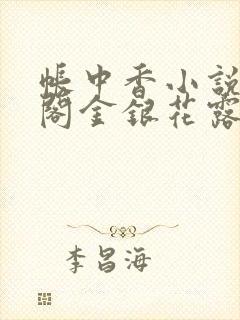 帳中香小說
閣金銀花露
李昌海